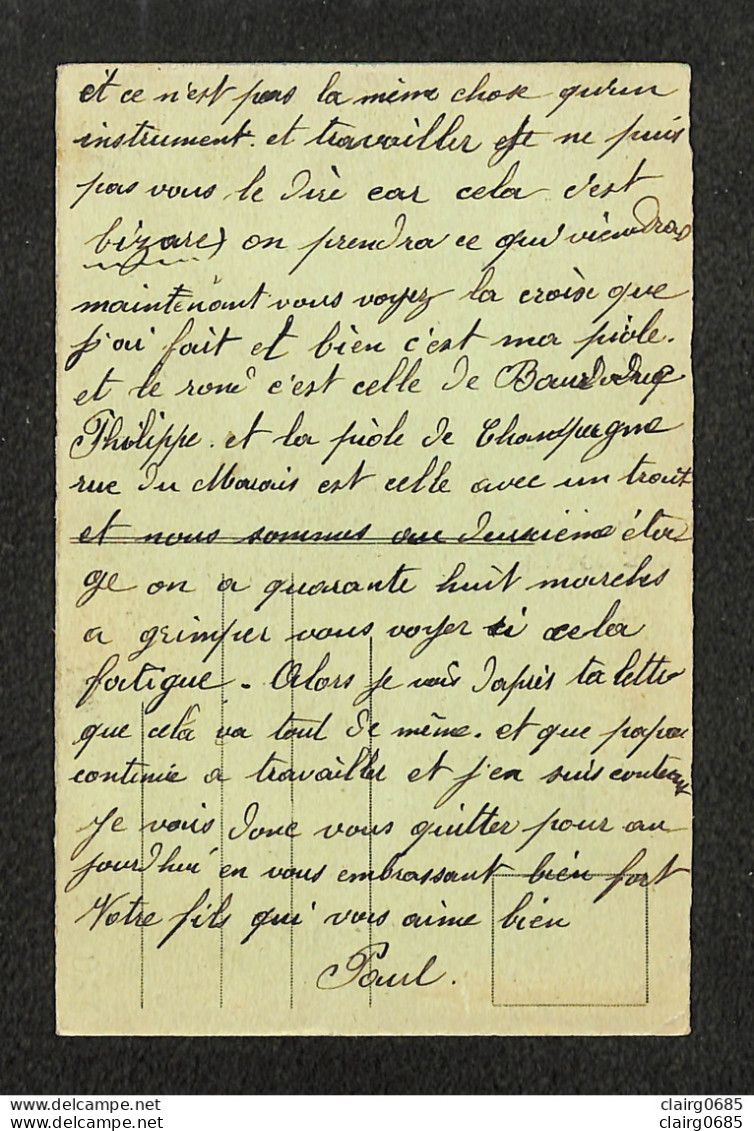 et ce n'est pas la même chose qu'un
instrument. et travailler je ne puis
pas vous le dire car cela c'est
bizare) on prendra ce qui viendras
maintenant vous voyez la croix que
j'ai fait et bien c'est ma piole.
et le rond c'est celle de
Philippe. et la piole de Champagne
rue du Marais est celle avec un trait
et nous sommes au deuxième éta
ge on a quarante huit marches
a grimper vous voyer si cela
fatigue. Alors je vois d'après ta lettre
que cela va tout de même. et que papa
continue a travailler et j'en suis content
Je vais donc vous quitter pour au
jourd'hui en vous embrassant bien fort
Votre fils qui vous aime bien
Paul.
clairg0685
clairg0685